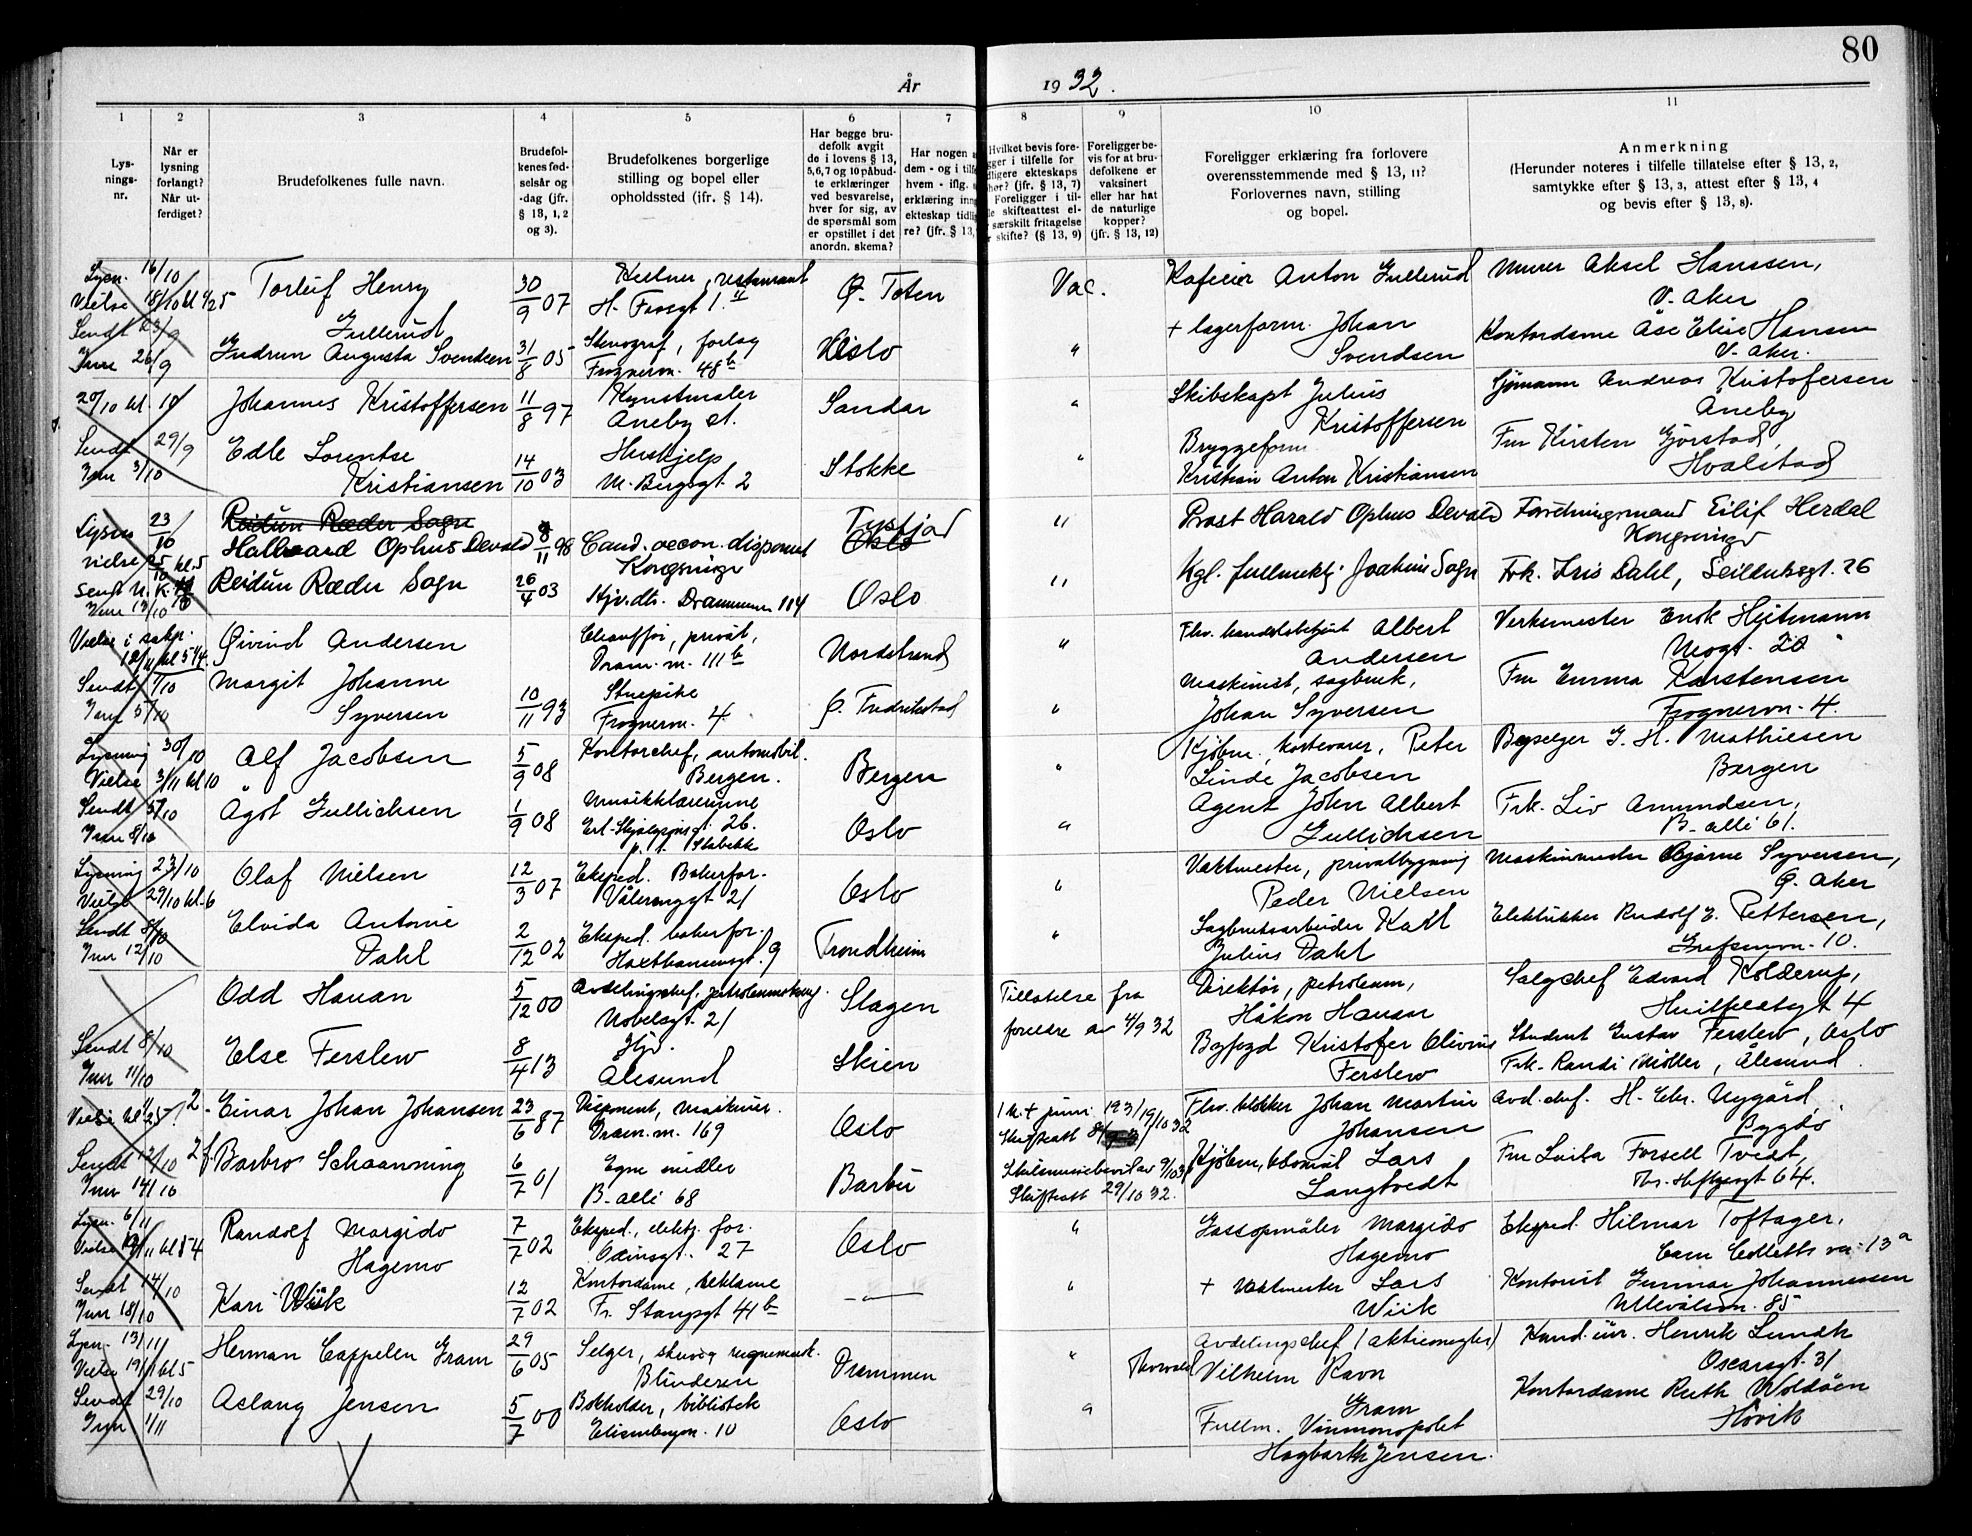 80
År 1932.
1 2 3 4 5 6 7 8 9 10 11
Lys-
nings-
nr.
Når er
lysning
forlangt?
Når ut-
ferdiget?
Brudefolkenes fulle navn.
Brudefol-
kenes fød-
selsår og
-dag (jfr.
§ 13, 1, 2
og 3).
Brudefolkenes borgerlige
stilling og bopel eller
opholdssted (jfr. § 14).
Har begge bru-
defolk avgit
de i lovens § 13,
5, 6, 7 og 10 påbud-
te erklæringer
ved besvarelse,
hver for sig, av
de spørsmål som
er opstillet i det
anordn. skema?
Har nogen
dem - og i tilf
hvem - iflg.
erklæring inn
ekteskap tidli
re? (jfr. § 13,
Hvilket bevis fore-
gger i tilfelle for
dligere ekteskaps
hør? (jfr. § 13, 7)
Foreligger i til-
le skifteattest el-
særskilt fritagelse
r skifte? (§ 13, 9)
Foreligger be-
vis for at bru-
defolkene er
vaksinert
eller har hat
de naturlige
kopper?
(jfr. § 13, 12)
Foreligger erklæring fra forlovere
overensstemmende med § 13, 11?
Forlovernes navn, stilling
og bopel.
Anmerkning
(Herunder noteres i tilfelle tillatelse efter § 13, 2,
samtykke efter § 13, 3, attest efter § 13, 4
og bevis efter § 13, 8).
Lysn. 16/10
Vielse 18/10 kl
Torleif Henry
Gullerud
30/9 07
Kelner, restaurant
Ø. Toten
Vac.
Anton Gullerud
Murer Aksel Hanssen,
V. Aker
Sendt 23/9
Inn 26/9
Gudrun Augusta Svendsen
31/8 05
Stenograf, forlag
Frognervn. 48b
Oslo
"
+ lagerform. Johan
Svendsen
Kontordame Åse Elise Hansen
V. Aker.
20/10 kl. 10
Johannes Kristoffersen
11/8 97
Kunstmaler
Aneby st.
Sandar
"
Skibskapt Julius
Kristoffersen
Sjømann Andreas Kristofersen
Åneby
Sendt 29/9
Inn 3/10
Edle Lorentse
Kristiansen
14/10 03
Huskjelp
M. Bergsgt. 2
Stokke
"
Bryggeform.
Kristian Anton Kristiansen
Fru Kirsten Gjørstad,
Hvalstad
Lysn 23/10
vielse 25/10 kl. 5
Reidun Ræder Sogn
Hallvard Ophus Devold
8/11 98
Cand. oecon. disponent
Kongsvinger
Tysfjord
Oslo
"
Prost Harald Ophus Devold
Forretningsmand Eilif Herdal
Kongsvinger
Inn 13/10
Reidun Ræder Sogn
26/4 03
Hjv. dtr. Drammensvn 114
Oslo
"
Kgl. fullmektj. Joachim Sogn
Frk. Iris Dahl, Seilduksgt. 26
Vielse i sakr.
kl 5 1/4
Øivind Andersen
Chauffør, privat,
Dram. vn. 111b
Nordstrand
"
Fhv. handelsbetjent Albert
Andersen
Verksmester Enok Heitmann
Mogt. 20
Sendt 1/10
Inn 5/10
Margit Johanne
Syversen
10/11 93
Stuepike
Frognervn. 4.
G. Fredrikstad
"
Maskinist, sagbruk,
Johan Syversen
Fru Emma Karstensen
Frognervn. 4.
Lysning 30/10
Vielse 3/11 kl 10
Alf Jacobsen
5/9 08
Kontorchef, automobil.
Bergen.
Bergen
"
Kjøbm., kortevarer, Peter
Linde Jacobsen
G. H. Mathiesen
Bergen
Sendt 5/10
Inn 8/10
Ågot Gullichsen
1/9 08
Musikklærerinne
Erl. Skjalgsøns gt. 26.
p. t. Stabekk
Oslo
"
Agent John Albert
Gullichsen
Frk. Liv Amundsen,
B. alle 61.
Lysning 23/10
Vielse 29/10 kl. 6
Olaf Nielsen
12/3 07
Eksped. Bakerfor.
Vålerenggt 21
Oslo
"
Vaktmester, privatbygning
Peder Nielsen
Maskinmester Bjarne Syversen,
Ø. Aker
Sendt 8/10
Inn 12/10
Elvida Antonie
Dahl
2/12 02
Eksped. bakerfor.
Haxthausensgt. 9
Trondheim
"
Sagbruksarbeider Karl
Julius Dahl
Elektriker Rudolf E. Pettersen,
Grefsenvn. 10.
Odd Hauan
5/12 00
Avdelingschef, petroleumskomp.
Nobelsgt. 21
Slagen
Tillatelse fra
foreldre av 4/9 32
Direktør, petroleum,
Håkon Hauan
Salgschef Edvard Kolderup,
Huitfeldtsgt 4
Sendt 8/10
Inn 11/10
Else Ferslew
8/4 13
Hjv.
Ålesund
Skien
Byfogd Kristofer Olivius
Ferslew
Student Gustav Ferslew, Oslo
Frk. Randi Møller, Ålesund.
2. Einar Johan Johansen
23/6 87
Disponent, maskiner.
Dram. vn. 169
Oslo
Fhv. klokker Johan Martin
Johansen
Avd. chef. H. Chr. Nygård,
Bygdø
Sendt 12/10
Inn 14/10
2 f. Barbro Schaanning
6/7 01
Egne midler
B. alle 68
Barbu
Skilsmissebevil av 9/10 31
Skifteatt 29/10 32.
Kjøbm, kolonial Lars
Langtvedt
Fru Lovisa Forsell Tvedt,
Th. Heftyesgt 64.
Lysn. 6/11
Randolf Margido
Hagemo
7/7 02
Eksped., elektr. for.
Odinsgt. 27
Oslo
"
Gassopmåler Margido
Hagemo
Eksped. Hilmar Toftager,
Cam Colletts vei 13a
Sendt 14/10
Inn 18/10
Kari Wiik
12/7 02
Kontordame, reklame
Fr. Stangsgt 41b
— " —
"
+ Vaktmester Lars
Wiik
Kontorist Gunnar Johannessen
Ullevålsvn. 85
Lysn. 13/11
Vielse 19/11 kl 5
Herman Cappelen Gram
29/6 05
Selger, skriv og regnemask.
Blinderen
Drammen
"
Avdelingschef (aktiemegler)
Thorvald Vilhelm Ravn
Gram
Kand. jur. Henrik Lundh
Oscarsgt. 31
Sendt 29/10
Inn 1/11
Aslaug Jensen
5/7 00
Bokholder, bibliotek
Elisenbergvn. 10
Oslo
"
Fullm. Vinmonopolet
Hagbarth Jensen.
Kontordame Ruth Woldøen
Høvik